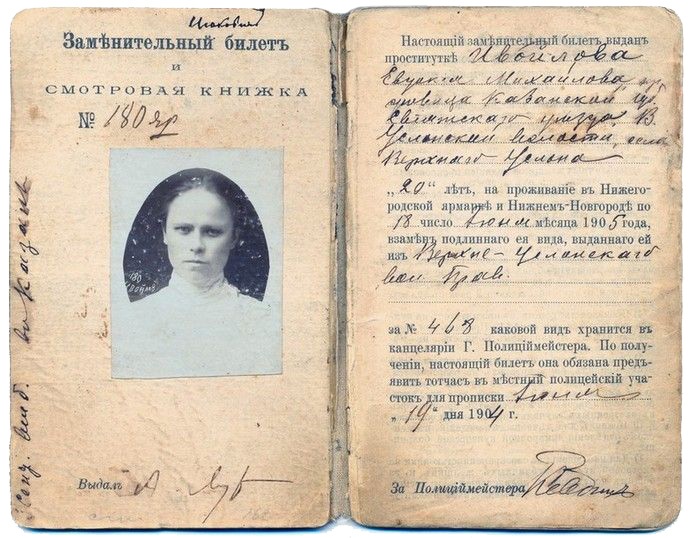 Замѣнительный билетъ
и
СМОТРОВАЯ КНИЖКА
№ 180 яр
180
Выдалъ
въ Казань
Настоящій замѣнительный билетъ выданъ
проституткѣ Ивойлова
Евдокія Михайлова, кр.
Казанской губ.
Свіяжскаго уѣзда, В.
Услонской волости, села
Верхняго Услона
„20“ лѣтъ, на проживаніе въ Нижего-
родской ярмаркѣ и Нижнемъ-Новгородѣ по
18 число Іюня мѣсяца 1905 года,
взамѣнъ подлиннаго ея вида, выданнаго ей
изъ Верхне-Услонскаго
вол. Прав.
за № 468 каковой видъ хранится въ
канцеляріи Г. Полиціймейстера. По полу-
ченіи, настоящій билетъ она обязана предъ-
явить тотчасъ въ мѣстный полицейскій уча-
стокъ для прописки Іюня
„19“ дня 1904 г.
За Полиціймейстера